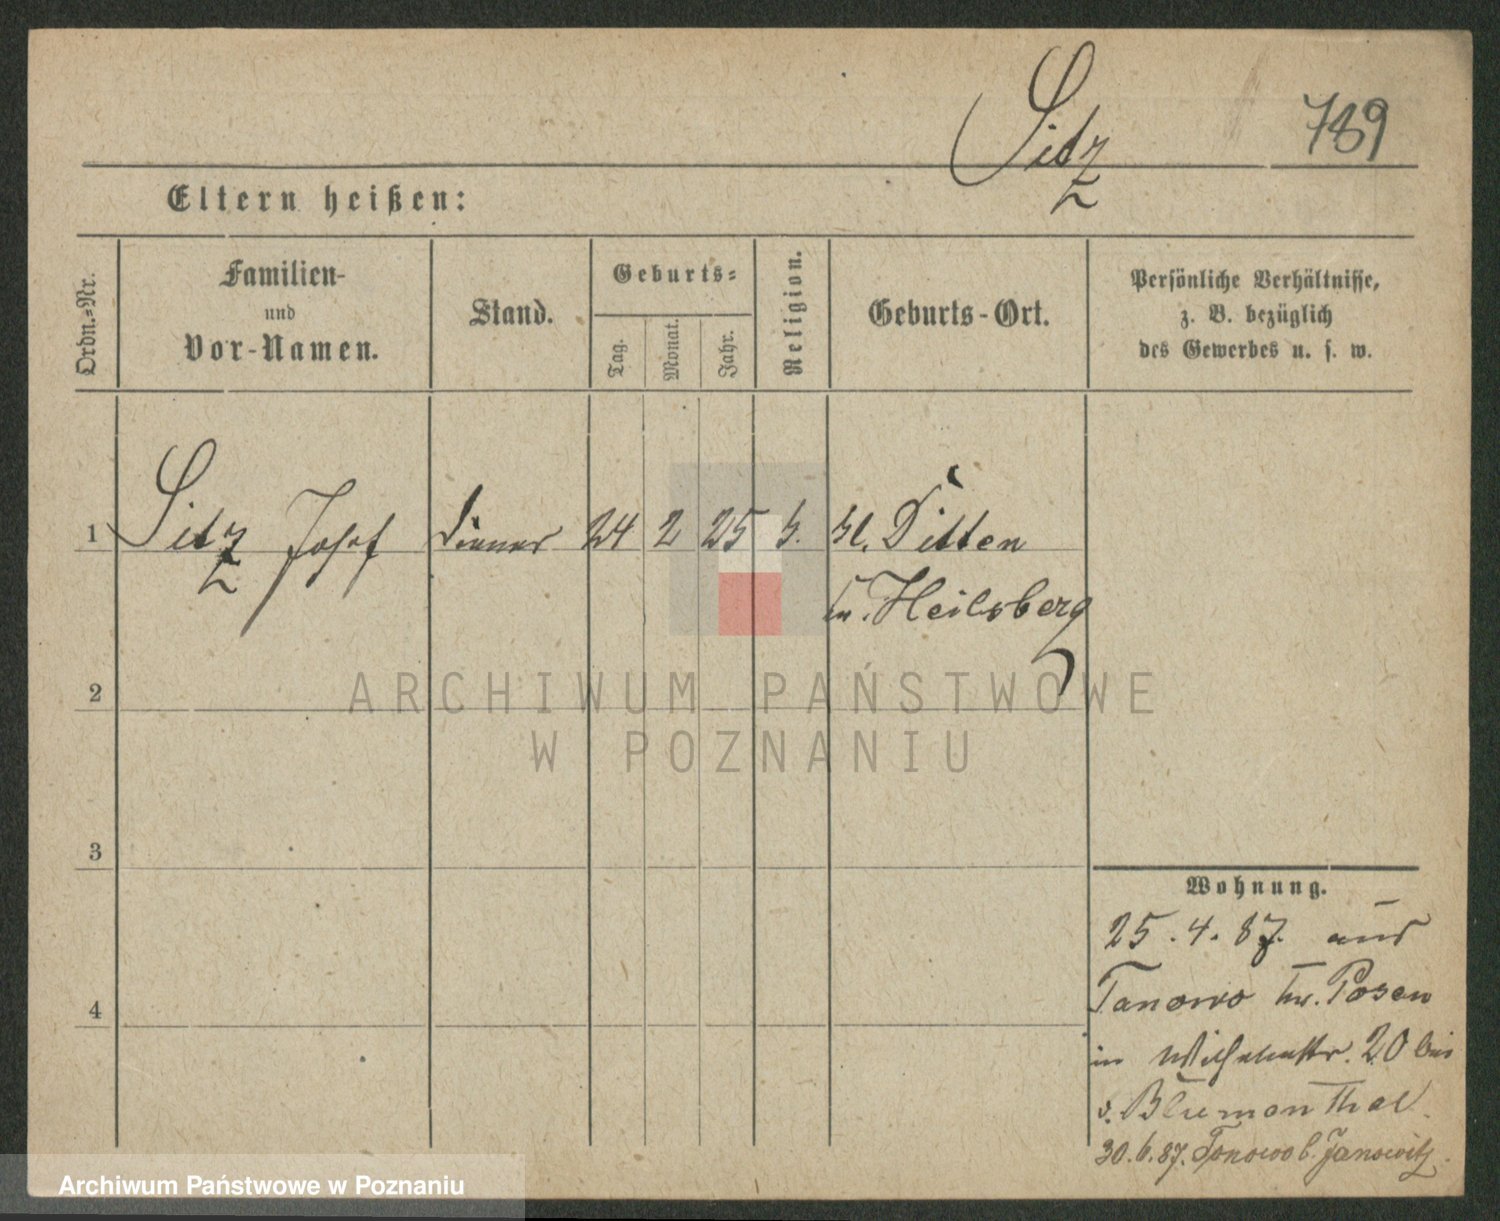 Sitz
789
Eltern heißen:
Ordn.=Nr.
Familien-
und
Vor-Namen.
Stand.
Geburts=
Tag.
Monat.
Jahr.
Religion.
Geburts-Ort.
Persönliche Verhältnisse,
z. B. bezüglich
des Gewerbes u. s. w.
1 Sitz Josef Diener 24 2 25 Kl. Ditten
Heilsberg
2
3
4
Wohnung.
25.4.87. aus
Tanowo Posen
in Wilhelmstr. 20 bei
v. Blumenthal.
30.6.87. Tonowo b. Janowitz.
ARCHIWUM PAŃSTWOWE
W POZNANIU
Archiwum Państwowe w Poznaniu